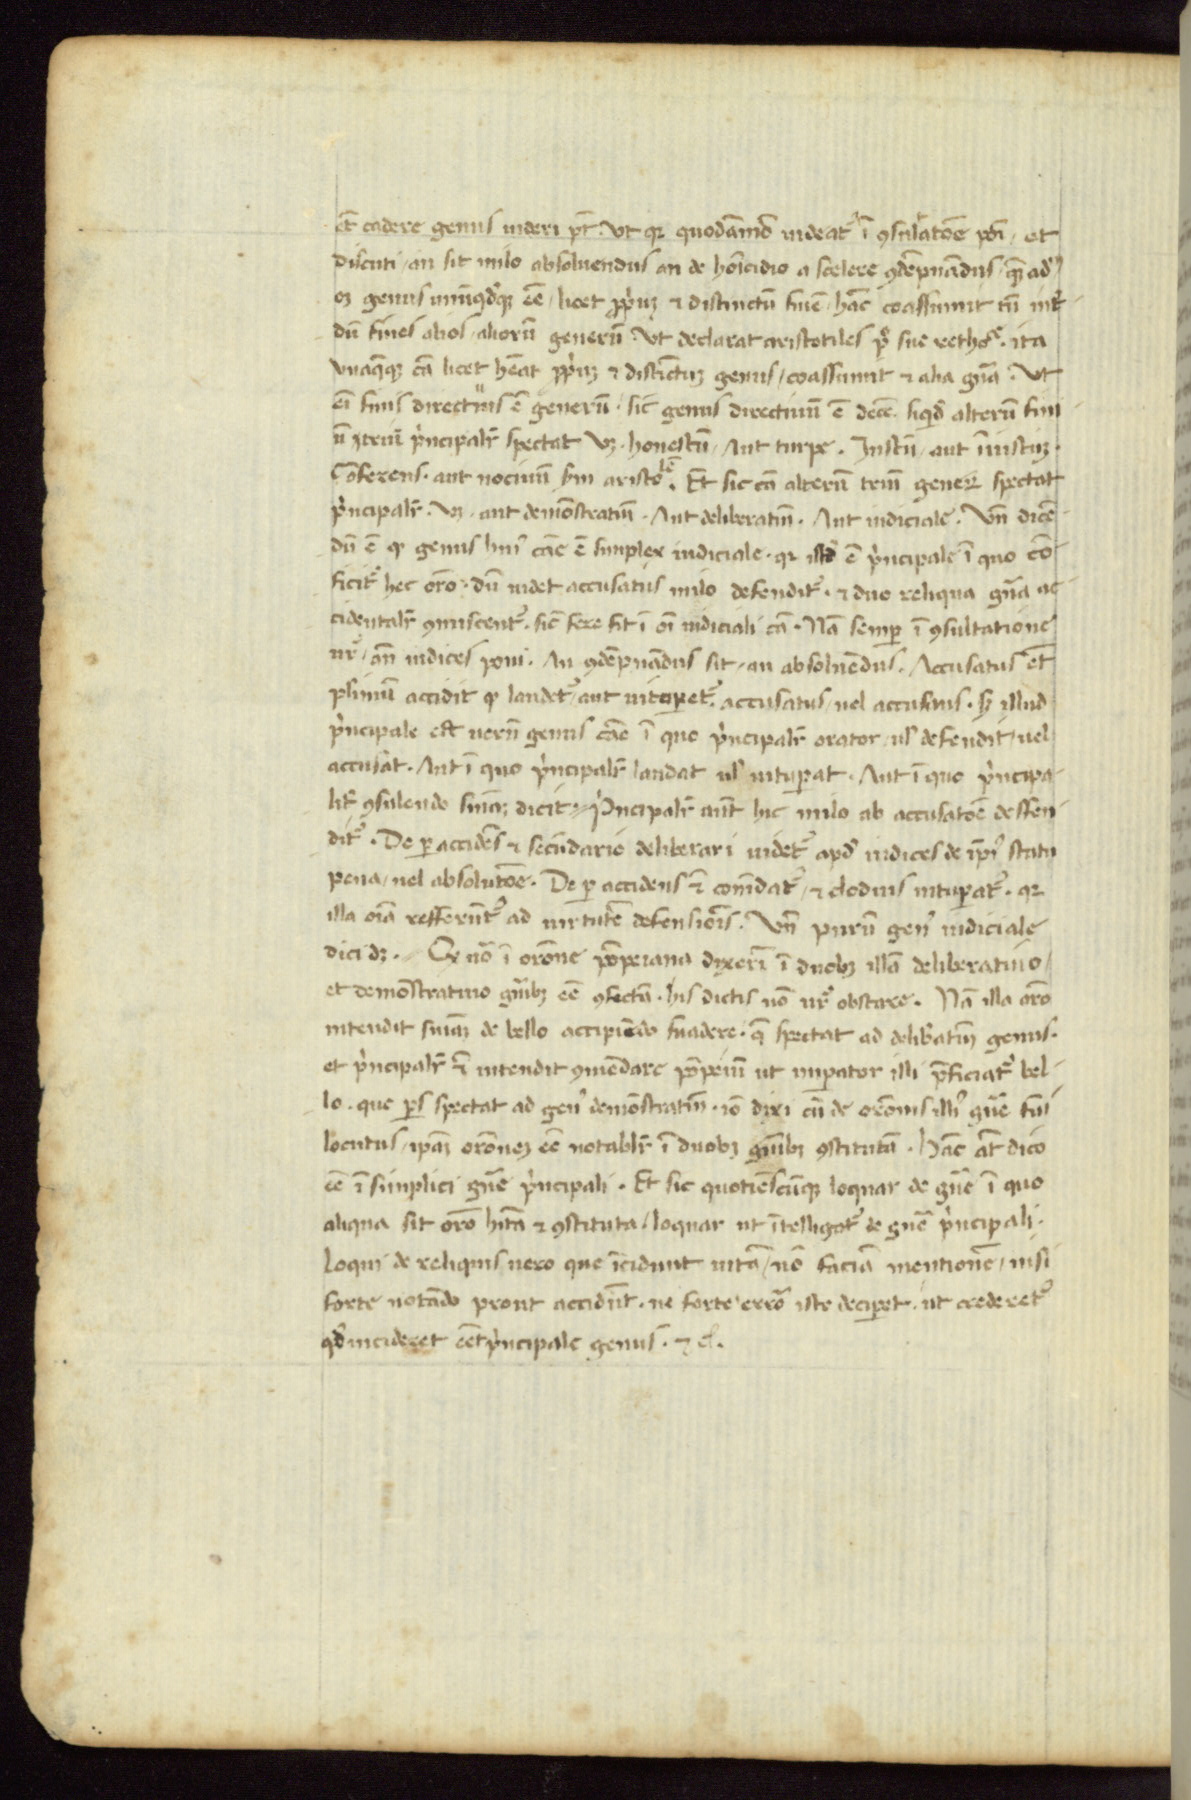 et̄ cadere genus uideri pt̄. Vt qꝛ quodāmō uideat᷑ ī ꝯsulatōe poī, et
discuti, an sit milo absoluendus an de hoīcidio a scelere ꝯdēpnādus,
genus unūqđqꝫ eē, licet ꝓpriuꝫ ⁊ distinctū finē hāc coassumit tn̄ int̄
dū fines alios, aliorū generū. Vt declarat aristotiles pͦ sue rethoꝵ. ita
Vnaqꝫ cā licet hēat ꝓpriuꝫ ⁊ distinctuꝫ genus, coassumit ⁊ alia gn̄a. Vt
eī finis directiuus ē generū. sic genus directiuū ē
pͥncipalr̄ spectat vꝫ. honestū, Aut turpe. Justū, aut īiustuꝫ.
Cōferens. aut nociuū sm̄ aristotelē. Et sic cā alterū triū generꝵ spectat
pͥncipalr̄. vꝫ. aut demōstratiuū. Aut deliberatiuū. Aut iudiciale. Vn̄ dicē
dū ē ꝙ genus huiꝰ cāe ē simplex iudiciale. qꝛ istđ ē pͥncipale ī quo cō
ficit᷑ hec orō. dū uidet accusatus milo defendit᷑. ⁊ duo reliqua gn̄a ac
cidentalr̄ ꝯmiscent᷑. sic fere fit ī oī iudiciali cā. Nā semꝑ ī ꝯsultatione
ur̄, an̄ iudices poni. An ꝯdēpnādus sit, an absoluēdus. Accusatus et̄
plurimū accidit ꝙ laudet᷑, aut uituꝑet᷑. accusatus, uel accusans. sꝫ illud
pͥncipale est uerū genus cāe ī quo pͥncipalr̄ orator, ul̄ defendit, uel
accusat. Aut ī quo pͥncipalr̄ laudat ul̄ uituꝑat. Aut ī quo pͥncipa
lit̄ ꝯsulendo suīaꝫ dicit. Pͥncipalr̄ aūt hic milo ab accusatōe deffen
dit᷑. De ꝑ accidēs ⁊ secūdario deliberari uidet᷑ apđ iudices de ipīꝰ statu
pena, uel absolutōe. De ꝑ accidens ⁊ cōmēdat᷑, ⁊ clodius uituꝑat᷑. qꝛ
illa oīa refferūt᷑ ad uirtutē defensiōis. Vn̄ purū genꝰ iudiciale
dici dꝫ. Ex uō ī orōne pōpeiana dixerī ī duobꝫ illā deliberatiuo,
et demōstratiuo gn̄ibꝫ eē ꝯfectā. his dictis nō ur̄ obstare. Nā illa orō
intendit suīaꝫ de bello accipiēdo suadere. q̄ spectat ad delib̄atiuū genus.
et pͥncipalr̄ ⁊ intendit ꝯmēdare pōpeiū ut imꝑator illi p̄ficiat᷑ bel
lo. que ꝑs spectat ad genꝰ demōstratiuū. iō dixi cū de orōnis illiꝰ gn̄e fui
locutus, ipāꝫ orōneꝫ eē notablr̄ ī duobꝫ gn̄ibꝫ ꝯstitutā. hāc āt dico
eē ī simplici gn̄e pͥncipali. Et sic quotiēscūqꝫ loquar de gn̄e ī quo
aliqua sit orō hīta ⁊ ꝯstituta, loquar ut ītelligat᷑ de gn̄e pͥncipali.
loqui de reliquis uero que īcidunt nō faciā mentionē, nisi
forte notādo prout accidūt. ne forte errō iste deciꝑet. ut crederet᷑
qđ incideret eēt pͥncipale genus. ⁊ c̄.